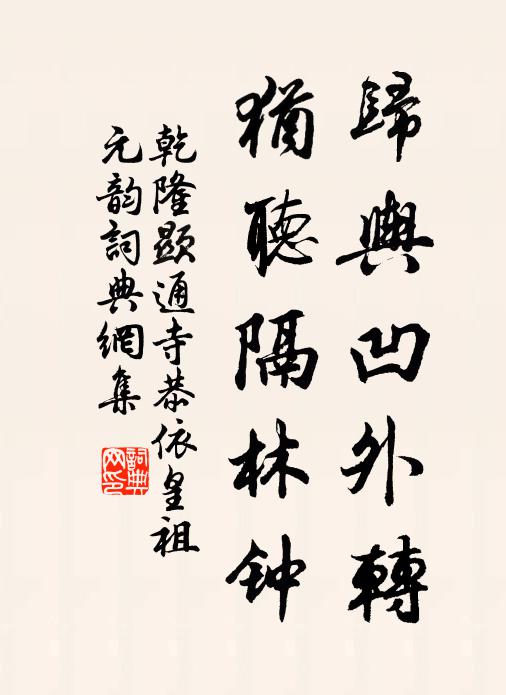 歸輿凹外轉
猶聽隔林钟
乾隆顯通寺恭依皇祖
元韵詞典網集
詞典網印